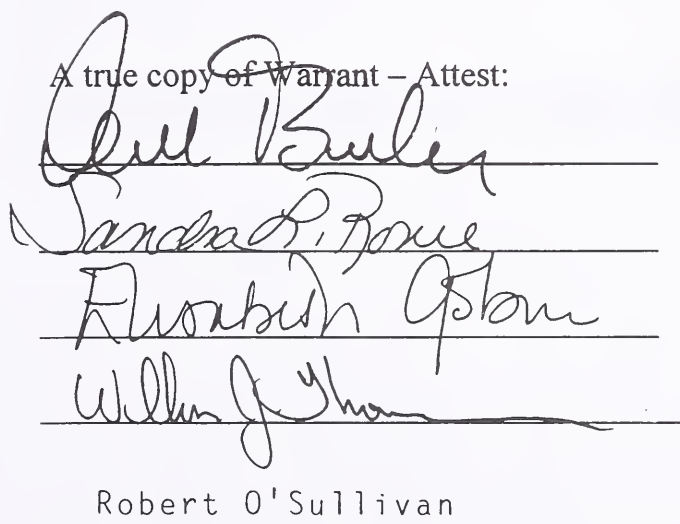 A true copy of Warrant – Attest:
Sandra L. Rowe
Elisabeth Osborn
William J. Thomas
Robert O'Sullivan